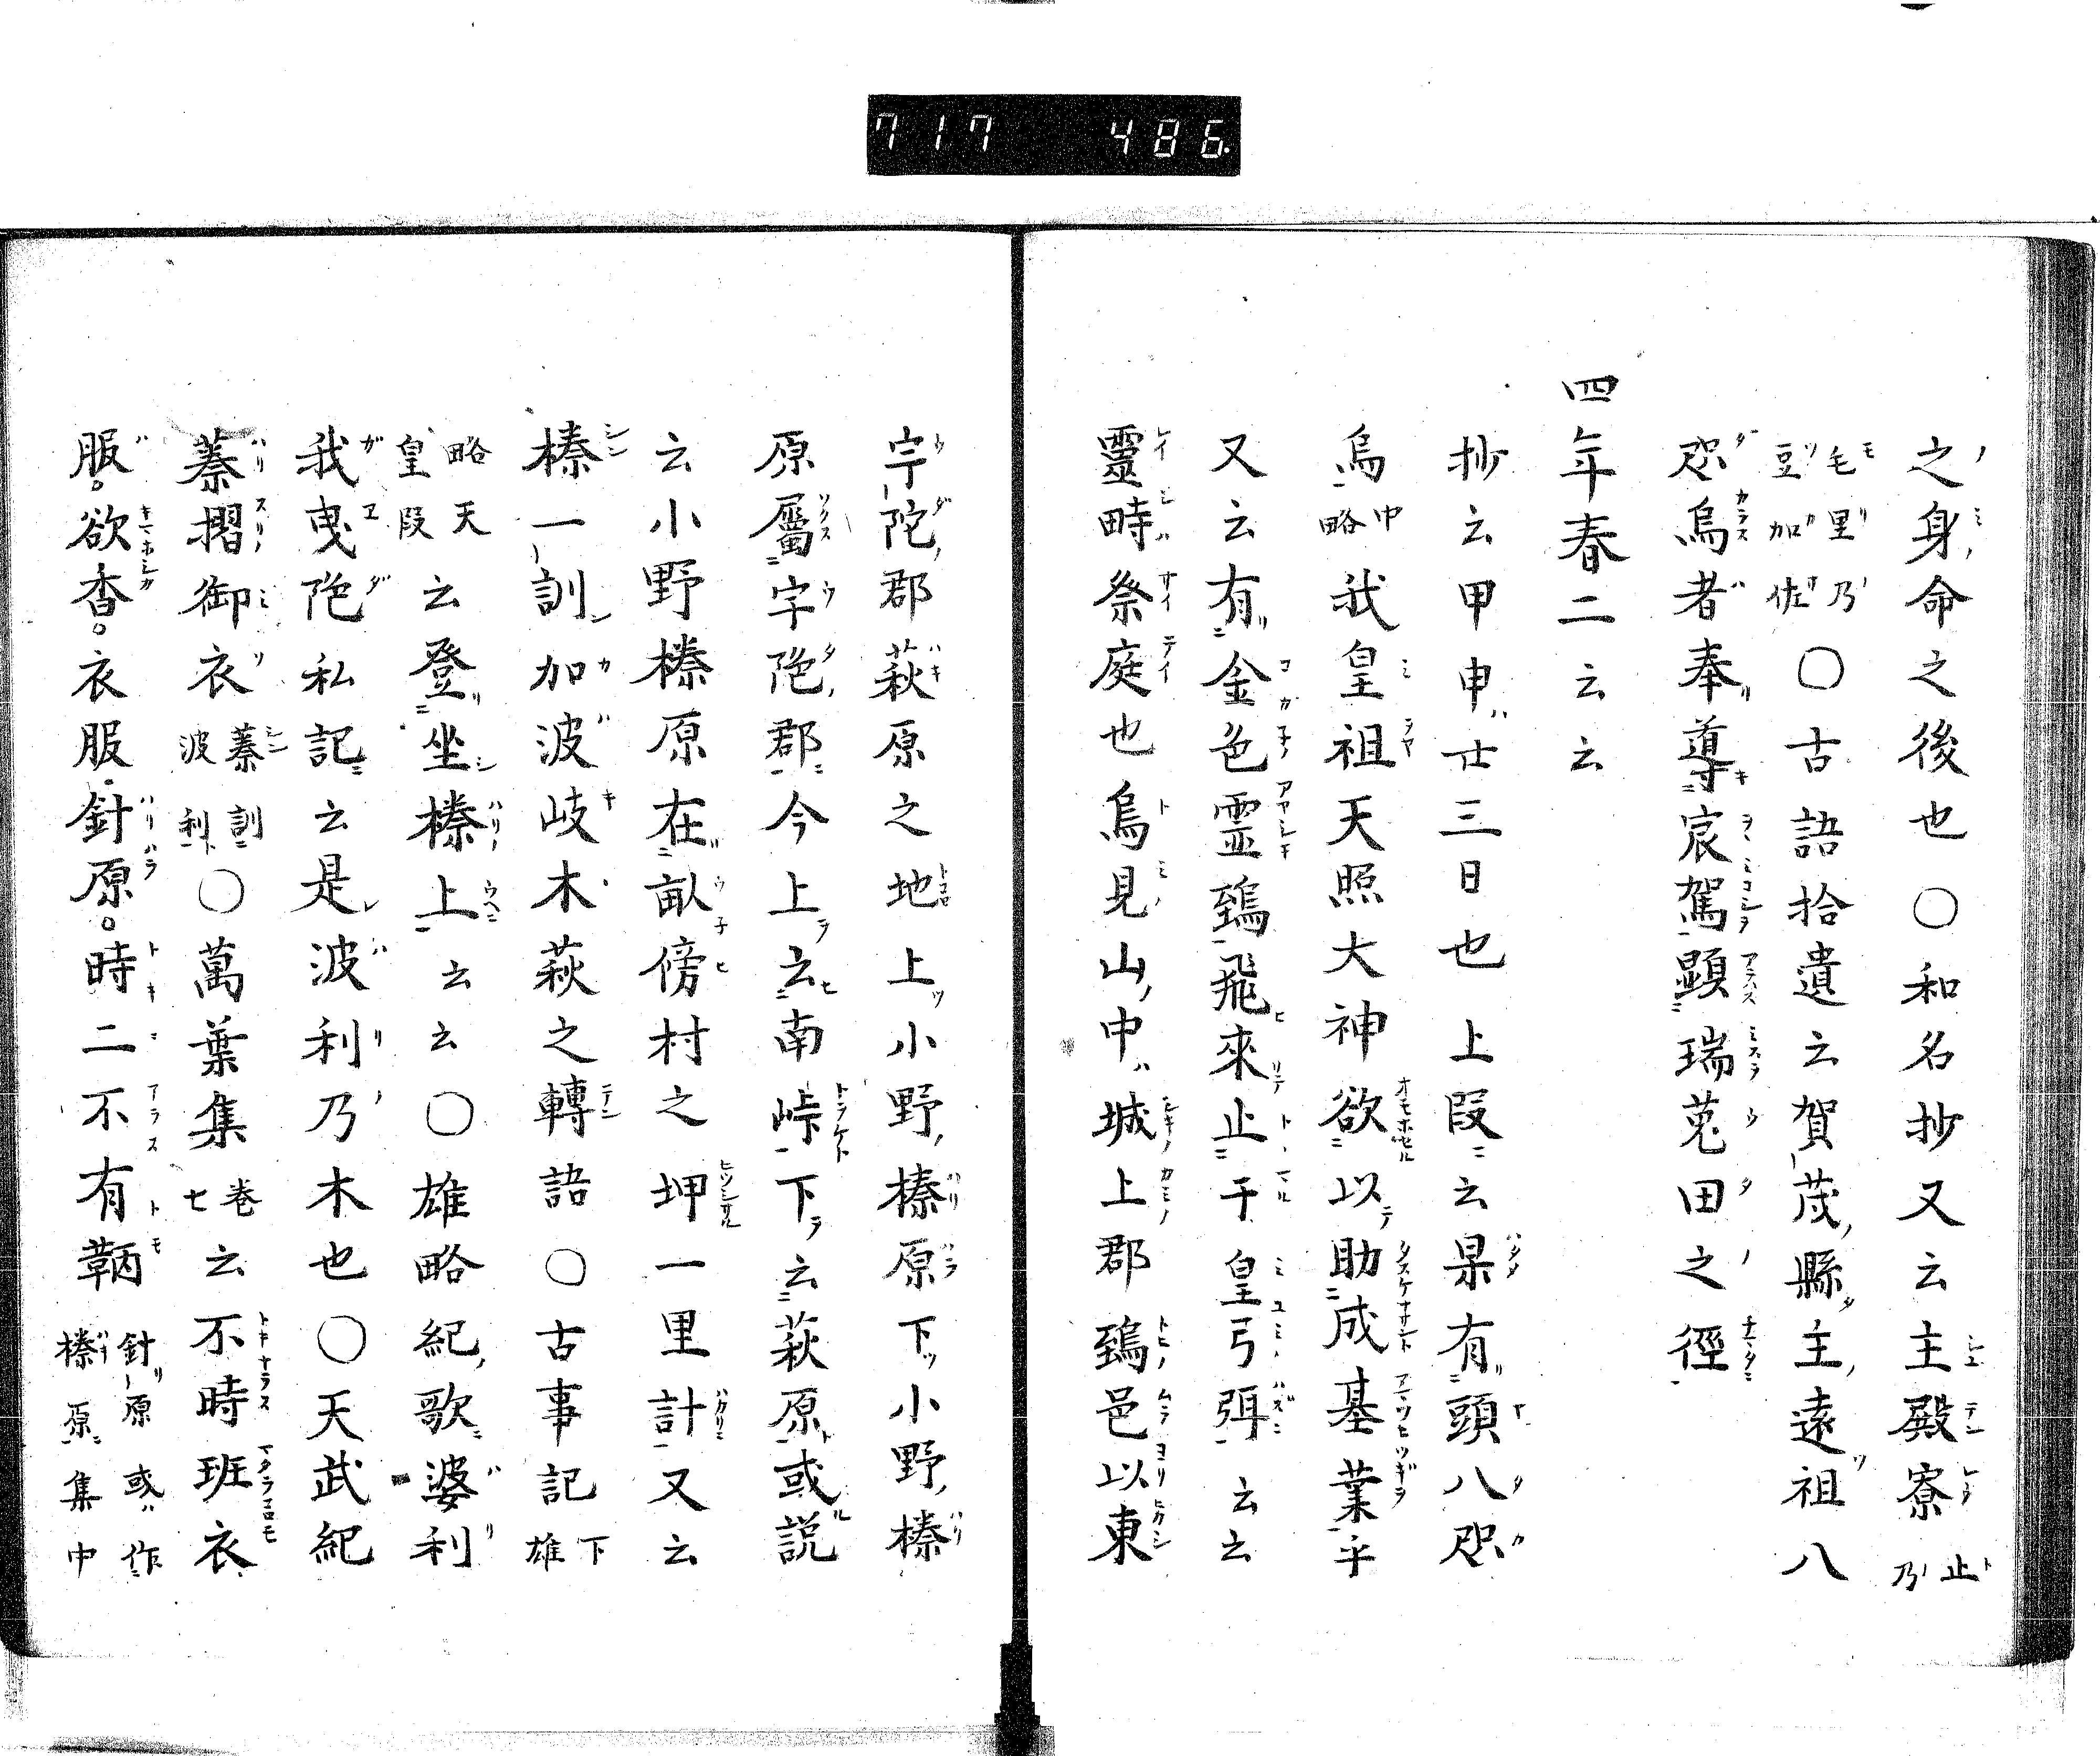 717 486
之身命之後也○和名抄又云主殿寮止乃
毛里乃豆加佐○古語拾遺云賀茂縣主遠祖八
咫烏者奉導宸駕顯瑞菟田之徑
四年春二云云
抄云甲申廿三日也上段云果有頭八咫
烏中略我皇祖天照大神欲以助成基業乎
又云有金色霊鵄飛來止于皇弓弭云云
靈畤祭庭也鳥見山中城上郡鵄邑以東
宇陀郡萩原之地上小野榛原下小野榛
原屬宇陁郡今上云南峠下云萩原或説
云小野榛原在畝傍村之坤一里計又云
榛一訓加波岐木萩之轉語○古事記下雄
略天皇段云登坐榛上云云○雄略紀歌婆利
我曳陁私記云是波利乃木也○天武紀
蓁摺御衣蓁訓波利○萬葉集巻七云不時班衣
服欲香衣服針原時二不有鞆針原或作榛原集中